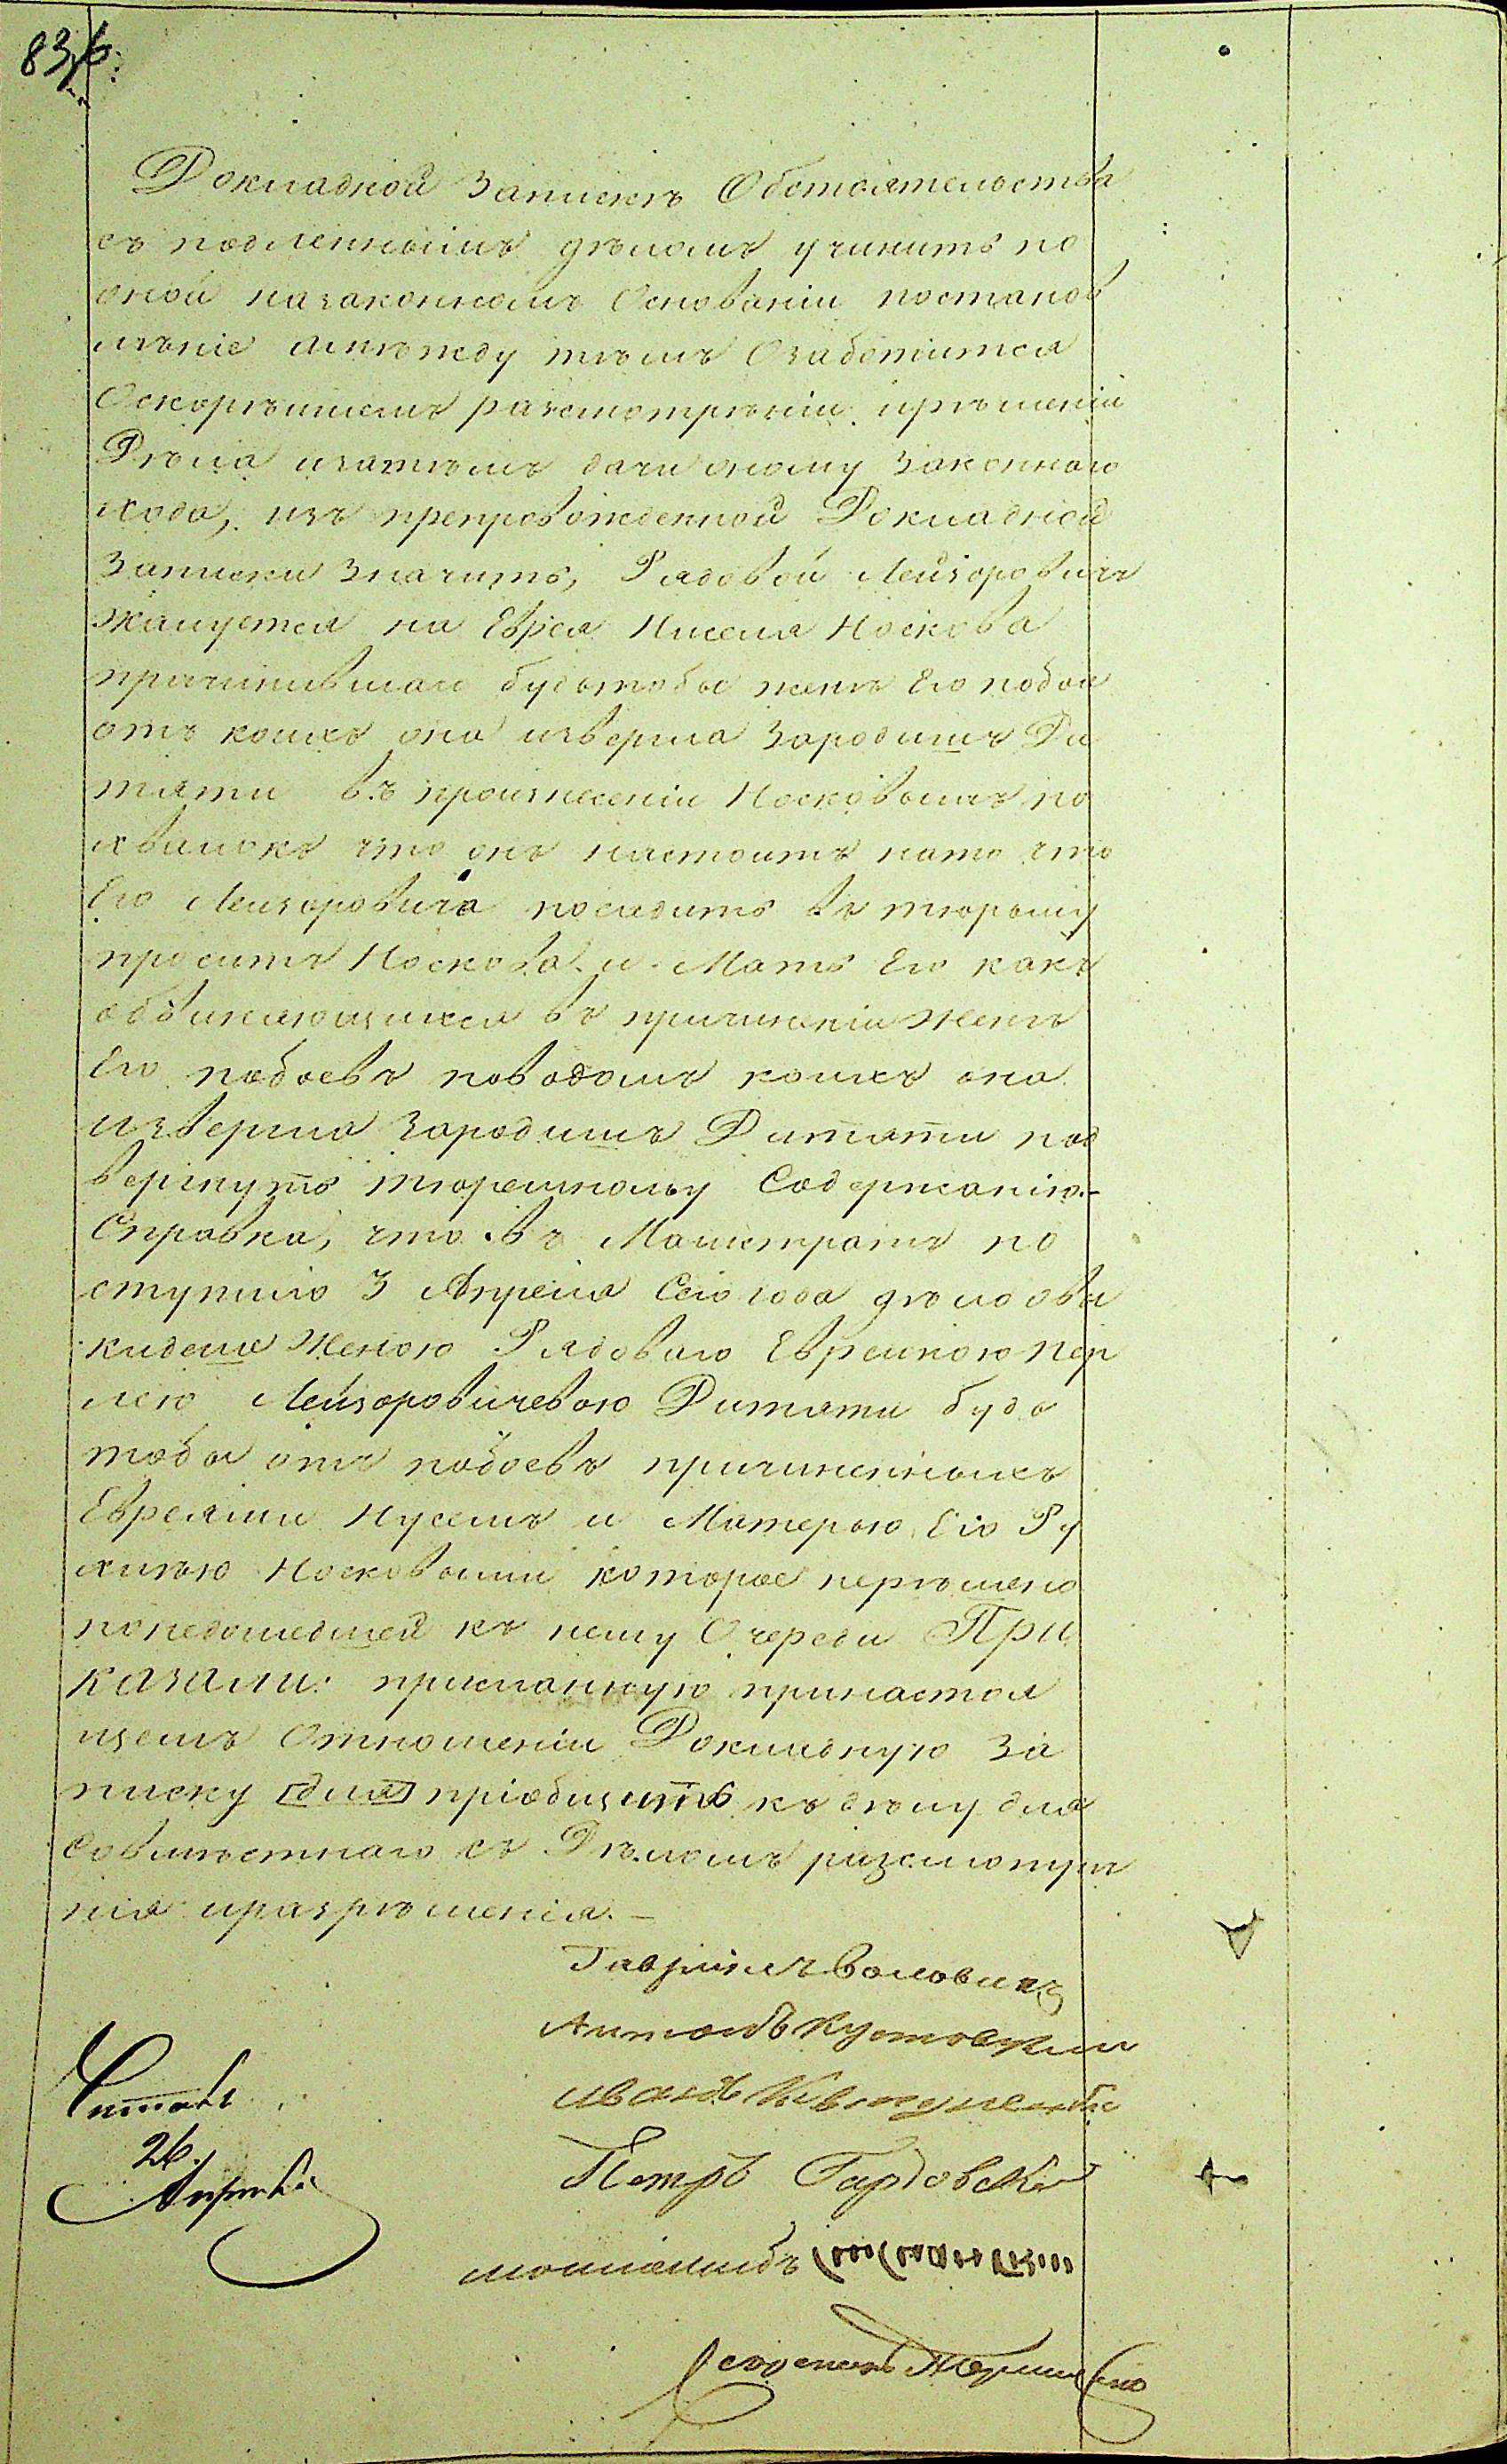 Докладной Запискѣ Обстоятельства
съ подленнымъ дѣломъ учинить по
оной назаконномъ Основаніи постанов
лѣніе амѣжду тѣмъ Озаботится
Оскорѣйшемъ разсмотрѣніи ирѣшеніи
Дѣла изатѣмъ дачи оному Законнаго
хода, изъ препровожденной Докладной
Записки Значитъ, Рядовой Лейзоровичъ
жалуется на Еврея Ниселя Носкова
причинившаго будьтобы женѣ Его побои
отъ коихъ она извергла Зародишъ Ди
тяти въ произнесеніи Носковымъ по
хвалокъ что онъ настоитъ нато что
Его Лейзоровича посадитъ въ тюрьму
проситъ Носкова и Мать Его какъ
обвиняющихся въ причиненіи Женѣ
Его побоевъ поводомъ коихъ она
извергла Зародишъ Дитяти под
вергнуть тюремному Содержанію.-
Справка, что въ Магистратъ по
ступило 3 Апреля Сего года дѣло овы
кидеше Женою Рядоваго Еврейкою Пер
лею Лейзоровичевою Дитяти будь
тобы отъ побоевъ причиненныхъ
Евреями Нуселъ и Матерью Его Ру
хлѣю Носковыми которое нерѣшено
понедошедшей къ нему Очереди При
казали: присланную принастоя
щемъ Отношеніи Докладную За
писку [для] пріобщить къ дѣлу для
Совмѣстнаго съ Дѣломъ разсмотрѣ
нія иразрѣшенія.-
Гавріилъ
Антонъ Кустовскій
Иванъ
Петръ
Читалъ
26